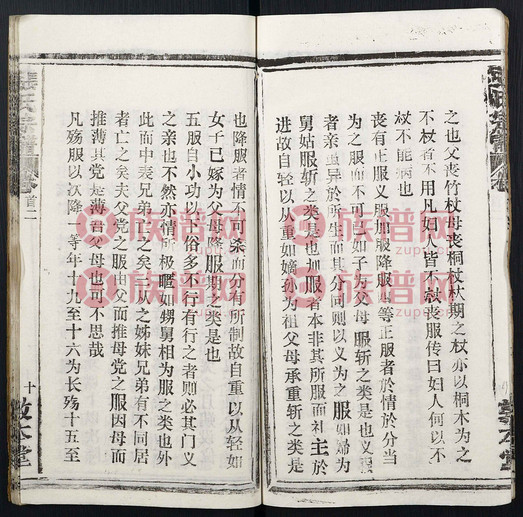 之父也父丧竹杖母丧桐杖杖期之杖亦以桐木为之
不杖者不用凡妇人皆不杖丧服传曰妇人何以不
杖不能病也
丧有正服义服加服降服四等正服者於情於分当
为之服而不可改如子为父母服斩之类是也义服
者亲虽异於所生而其分同则以义为之服如妇为
舅姑服斩之类是也加服者本非其所服而礼主於
进故自轻以从重如嫡孙为祖父母承重斩之类是
也降服者情不可杀而分有所制故自重以从轻如
女子已嫁为父母降服期之类是也
五服自小功以下俗多不行有行之者则必其门义
之亲也不然亦情所极暱如甥舅相为服之类也外
此而中表兄弟以之矣且从之姊妹兄弟有不同居
者亡之矣夫父党之服由父而推母党之服因母而
推薄其党是薄吾父母也可不思哉
凡殇服以次降一等年十九至十六为长殇十五至
张氏宗谱
卷首二
十
敦本堂
族谱网
zupu.cn